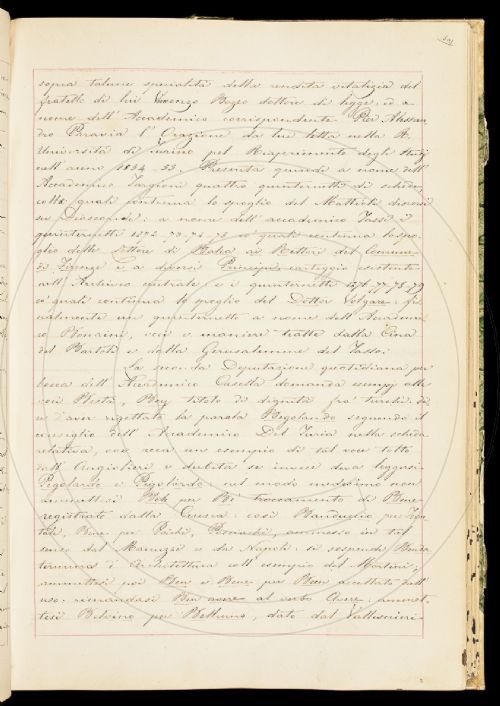 sopra talune specialità della rendita vitalizia del
fratello di lui Vincenzo Bozzo dottore di legge; ed a
nome dell'Accademico corrispondente Pier Alessan
dro Paravia l'Orazione da lui letta nella R.
Università di Torino pel Riaprimento degli Studj
nell'anno 1834-35. Presenta quindi a nome dell'
Accademico Targioni quattro quinternetti di schede,
colle quali continua lo spoglio del Mattioli discorsi
su Dioscoride: a nome dell'accademico Tassi i
quinternetti 1572-73-74-75 co' quali continua lo spo
glio delle Lettere di Balia ai Rettori del Comune
di Firenze e a diversi Principi carteggio esistente
nell'Archivio centrale e i quinternetti 1576-77-78-79
co' quali continua lo spoglio del Dottor Volgare: fi
nalmente un quinternetto a nome dell'Accademi
co voci e maniere tratte dalla Cina
del Bartoli e dalla Gerusalemme del Tasso.
La seconda Deputazione quotidiana per
bocca dell'Accademico Casella domanda esempj alle
voci Bey titolo di dignità fra' turchi: di
ce d'aver rigettata la parola Begolardo seguendo il
consiglio dell'Accademico Del Furia nella scheda
relativa, ove reca un esempio di tal voce tolto
dall'Angiolieri e dubita se invece deva leggersi
Pegolardo o Pegolardo nel modo medesimo non
ammettesi per Bi troncamento di Bene
registrato dalla Crusca: così
per ammesso in tal
senso dal Manuzzi e da Napoli: si sospende
termine d'Architettura coll'esempio del Martini;
ammettesi poi Ben e Bene per Beni accettato dall'
uso: rimandasi Ben avere al verbo Avere: ammet
tesi Belvino per dato dal Vallisnieri